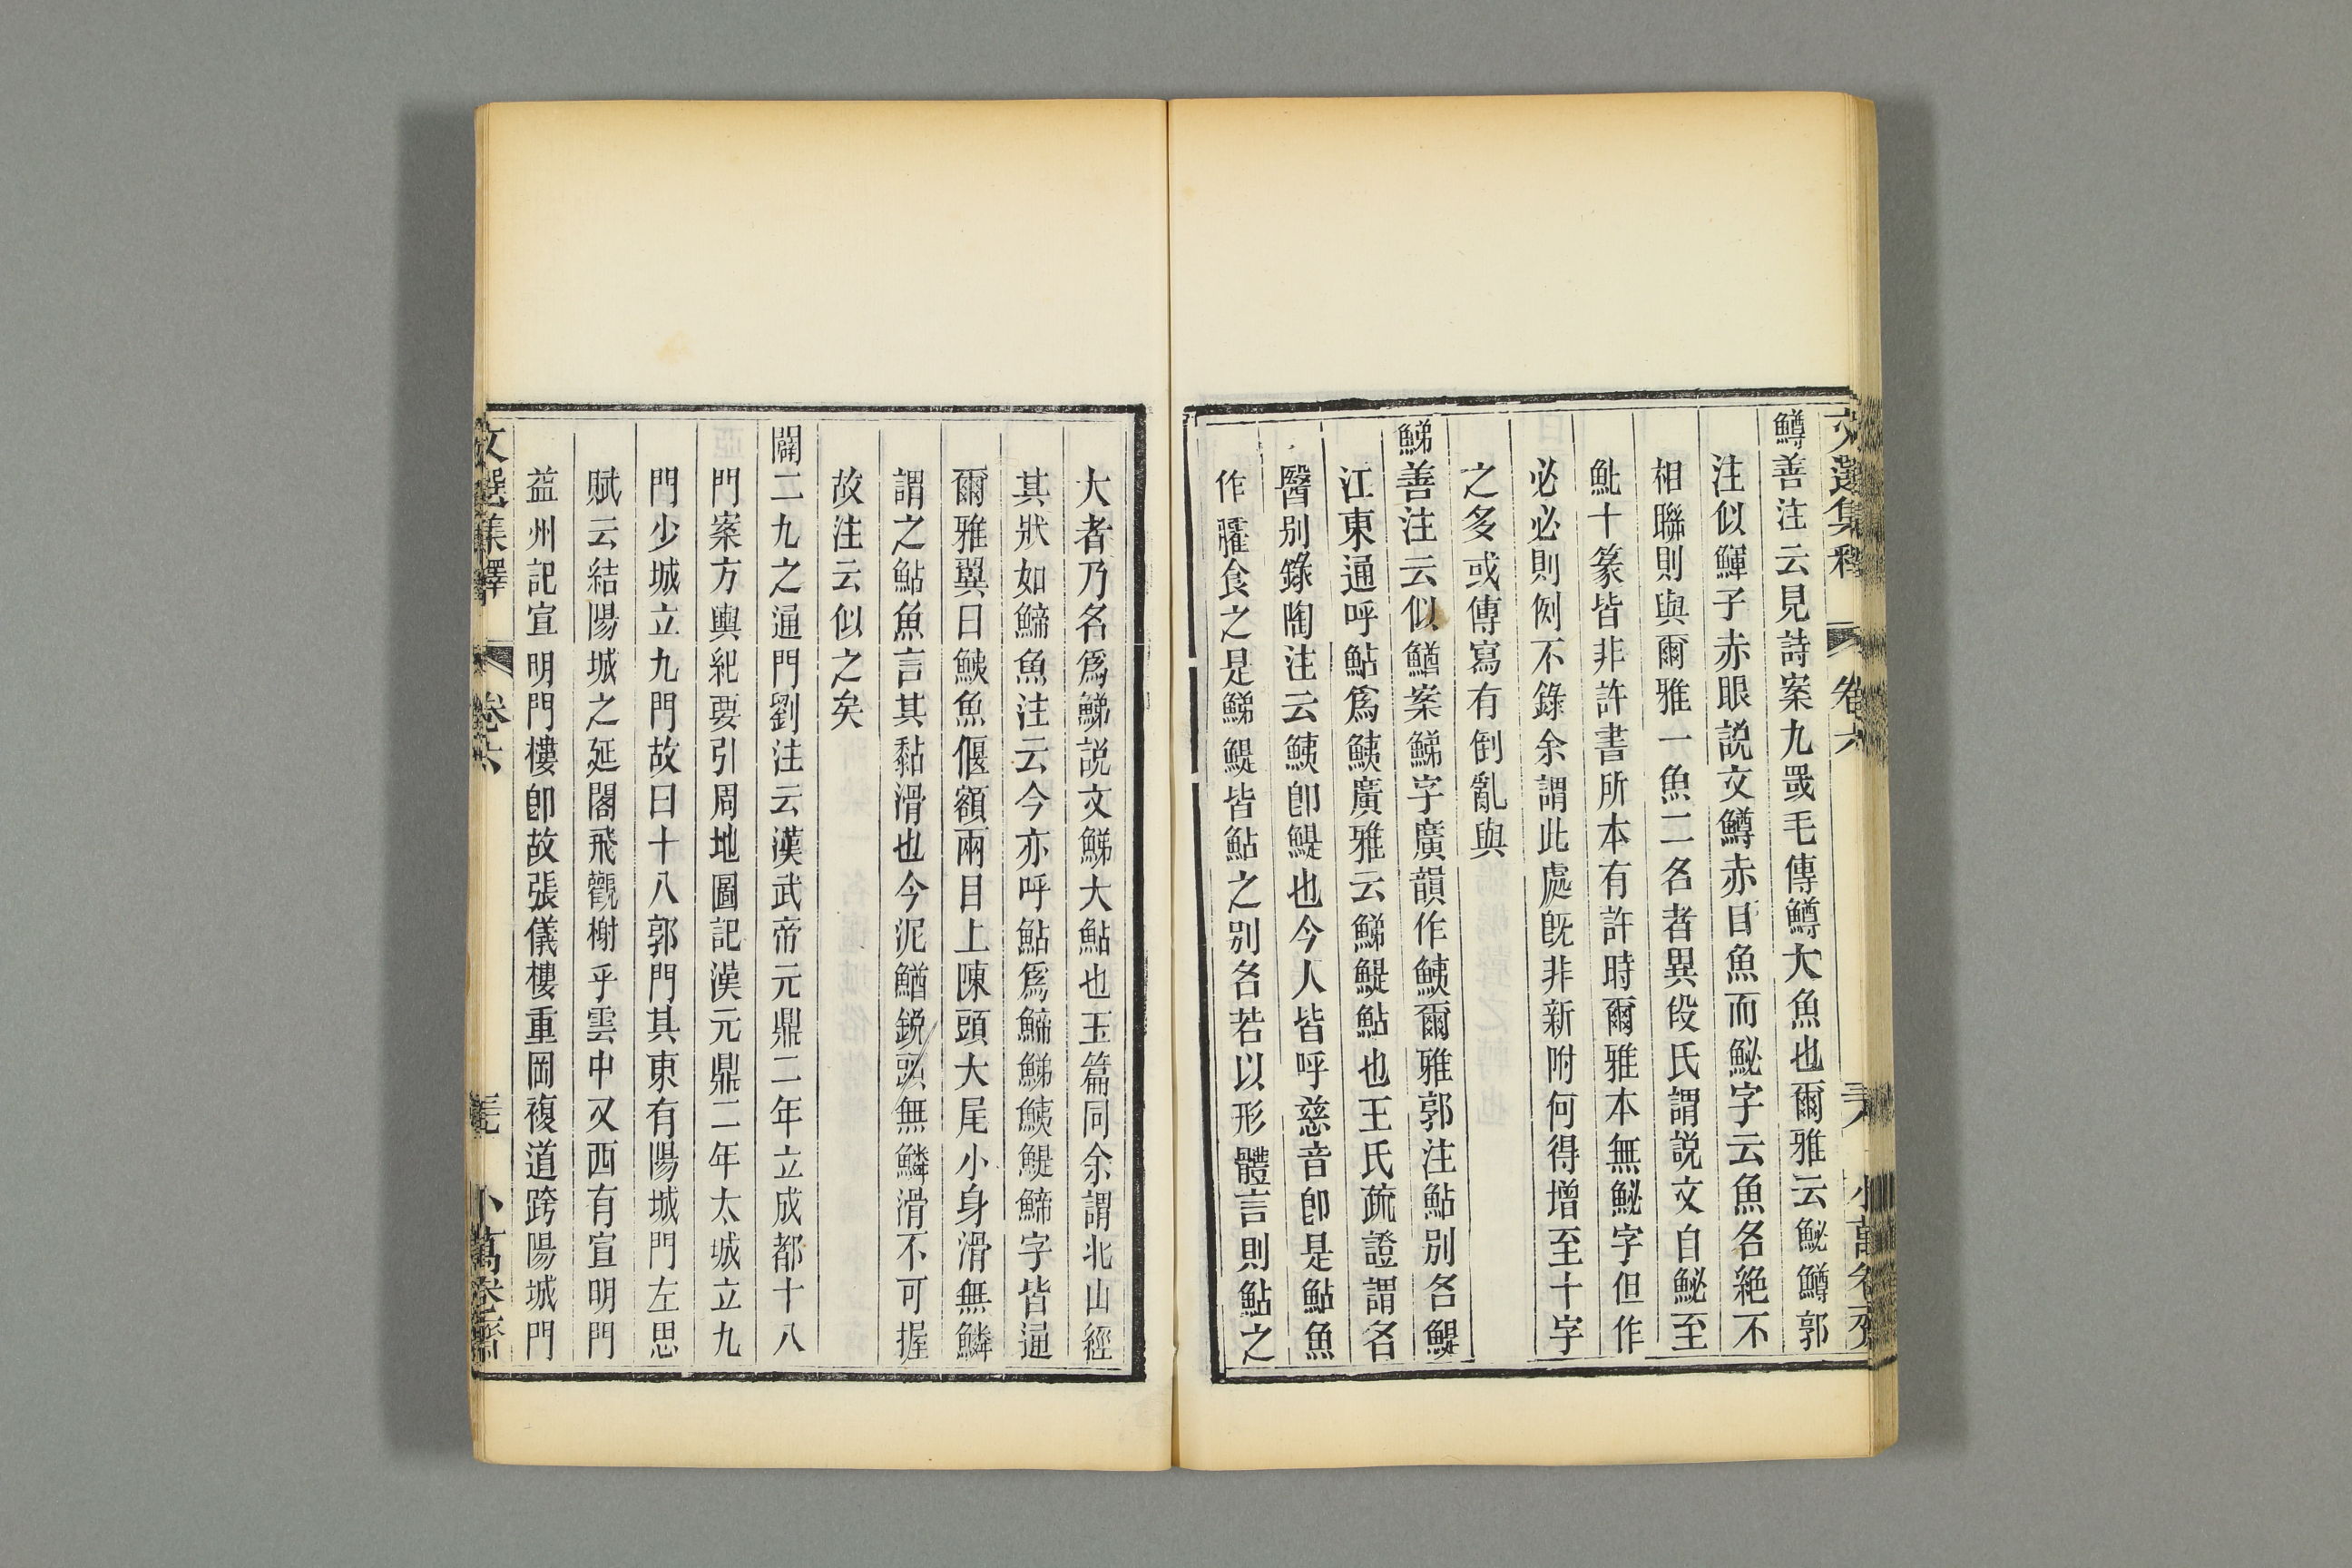 文選集釋 卷六 小萬卷齋
鱒善注云見詩案九罭毛傳鱒大魚也爾雅云鮅鱒郭
注似鯶子赤眼説文鱒赤目魚而鮅字云魚名絶不
相聯則與爾雅一魚二名者異段氏謂説文自鮅至
魮十篆皆非許書所本有許時爾雅本無鮅字但作
必必則例不錄余謂此處旣非新附何得增至十字
之多或傳寫有倒亂與
鮷善注云似鰌案鮷字廣韻作鮧爾雅郭注鮎別名鯷
江東通呼鮎爲鮧廣雅云鮷鯷鮎也王氏疏證謂名
醫別錄陶注云鮧卽鯷也今人皆呼慈音卽是鮎魚
作臛食之是鮷鯷皆鮎之別名若以形體言則鮎之
大者乃名爲鮷説文鮷大鮎也玉篇同余謂北山經
其狀如鯑魚注云今亦呼鮎爲鯑鮷鮧鯷鯑字皆通
爾雅翼曰鮧魚偃額兩目上陳頭大尾小身滑無鱗
謂之鮎魚言其黏滑也今泥鰌鋭頭無鱗滑不可握
故注云似之矣
闢二九之通門劉注云漢武帝元鼎二年立成都十八
門案方輿紀要引周地圖記漢元鼎二年太城立九
門少城立九門故曰十八郭門其東有陽城門左思
賦云結陽城之延閣飛觀榭乎雲中又西有宣明門
益州記宣明門樓卽故張儀樓重岡複道跨陽城門
文選集釋 卷六 小萬卷齋